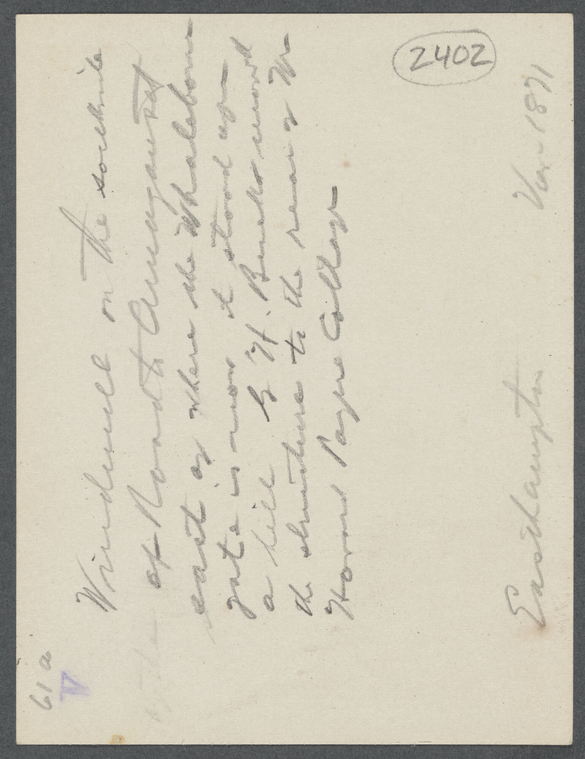 2402
Windmill on the south side
of Road to Amagansett
east of where the Whalebone
gate is now it stood upon
a hill G. H. Buek moved
the structure to the rear of the
Home Payne Cottage
Easthampton
1871
61 a
IV